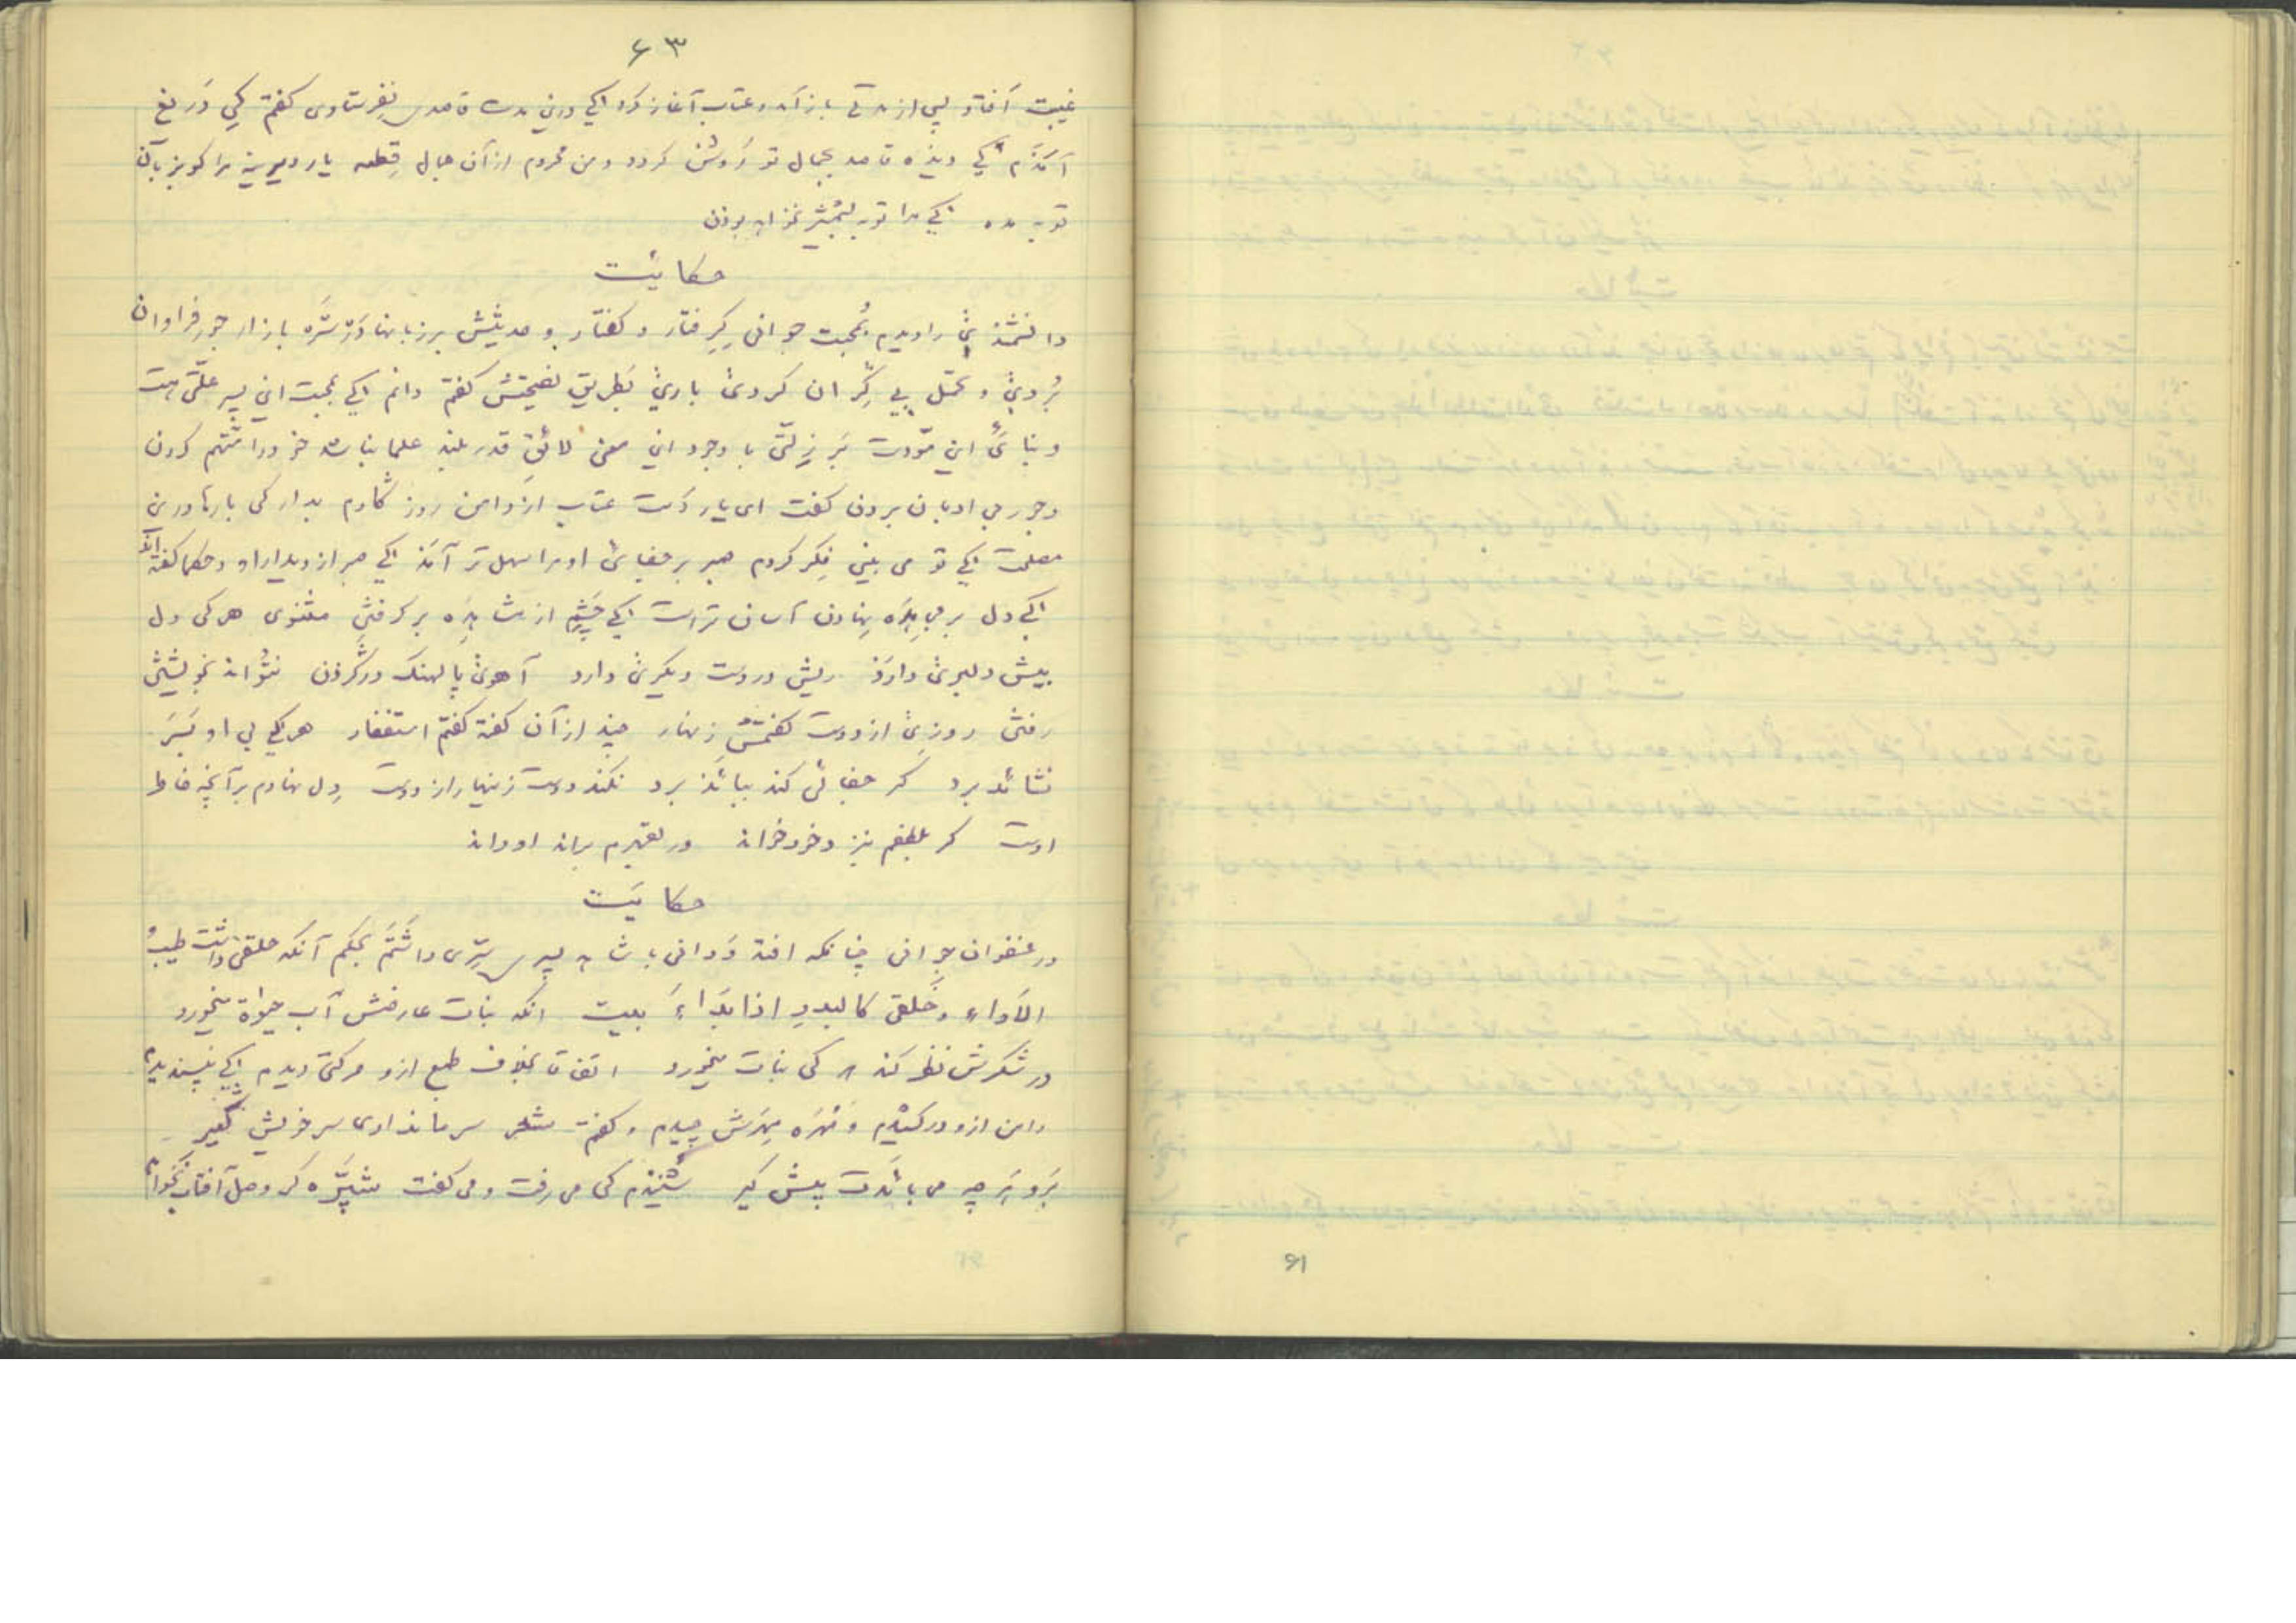 ۶۳
غیبت آفتاد پس از مدتی باز آمد و عتاب آغاز کرد کی درین مدت قاصدی نفرستادی کفتم کی دریغ
آمذم کی دیذه قاصد بجمال تو روشن کردد و من محروم ازآن جمال قطعه یار دیرینه مرا کو بزبان
توبه مده کی مرا توبه بشمشیر نخواهد بوذن
حکایت
دانشمندی را دیدم بمحبت جوانی کرفتار و کفتار و حدیثش بر زبانها در شده بازار جور فراوان
بردی و تحمل بی کران کردی باری بطریق نصیحتش کفتم دانم کی بمحبت این پسر علتی نیست
و بنائ این مودت بر زلتی با وجود این معنی لائق قدر بلند علما نباشد خود را متهم کردن
و جور بی ادبان بردن کفت ای یار دست عتاب از دامن روزکارم بدار کی بارها درین
مصلحت کی تو می بینی فکر کردم صبر بر جفای او مرا سهل تر آمذ کی صبر از دیدار او و حکما کفته اند
کی دل بر مجاهده نهادن آسان تراست کی چشم از مشاهده بر کرفتن مثنوی هر کی دل
پیش دلبری دارد ریش در دست دیکری دارد آهوی پالهنک در کردن نتواند بخویشتن
رفتن روزی از دوست کفتمش زنهار چند ازآن کفته کفتم استغفار هر کی بی او بسر
نشائد برد کر جفائی کند ببائد برد نکند دوست زینهار از دوست دل نهادم برآنچه خاطر
اوست کر بلطفم بنزد خود خواند ور بقهرم براند او داند
حکایت
در عنفوان جوانی چنانکه افتد و دانی با شاهد پسری سری داشتم بحکم آنکه حلقی داشت طیب
الاداء و خلقی کالبدر اذا بدا بیت انکه نبات عارضش آب حیوة میخورد
در شکرش نظر کند هر کی نبات میخورد اتفاقا بخلاف طبع ازو حرکتی دیدم کی نپسندیدم
دامن ازو درکشیدم و مهره مهرش چیدم و کفتم شعر سر ما نداری سر خویش کیر
برو هر چه می بائدت پیش کیر شنیذم کی می رفت و می کفت شپره کر وصل آفتاب نخواهد
۶۱